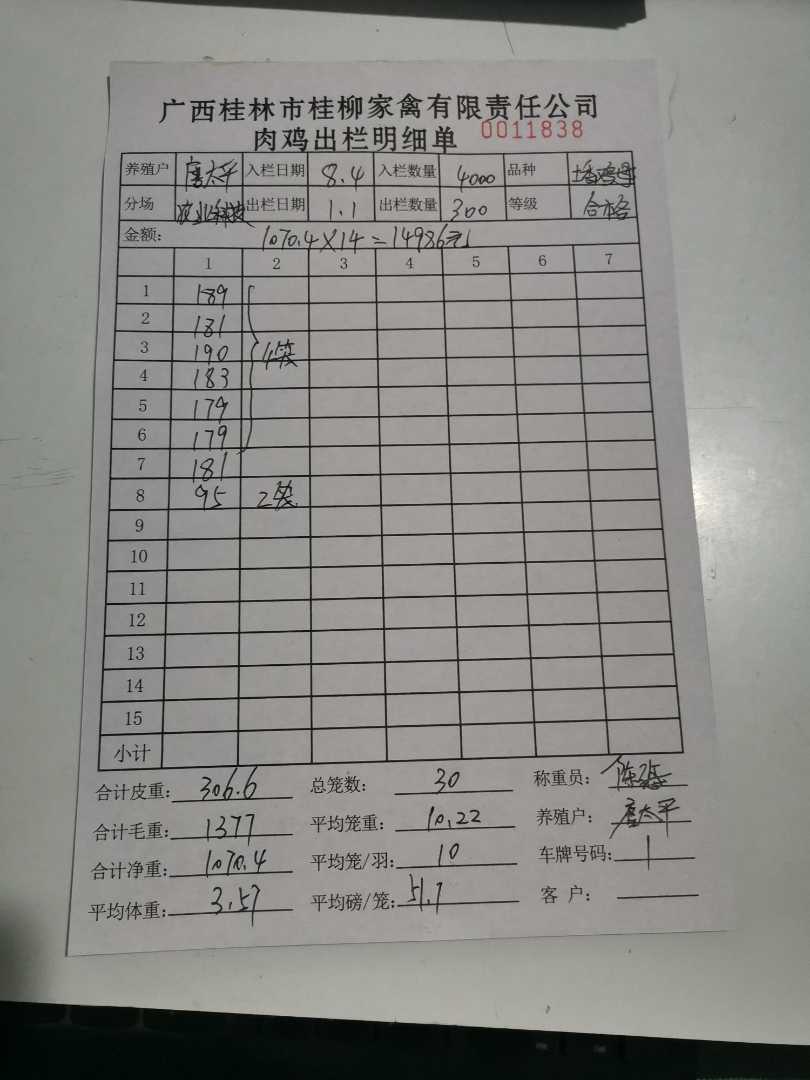 广西桂林市桂柳家禽有限责任公司
肉鸡出栏明细单 0011838
养殖户 唐太平 入栏日期 8.4 入栏数量 4000 品种
分场 农业科技 出栏日期 1.1 出栏数量 300 等级 合格
金额: 1070.4×14=14986元
1 2 3 4 5 6 7
1 189
2 181
3 190 4笼
4 183
5 179
6 179
7 181
8 95 2笼
9
10
11
12
13
14
15
小计
合计皮重: 306.6 总笼数: 30 称重员: 陈
合计毛重: 1377 平均笼重: 10.22 养殖户: 唐太平
合计净重: 1070.4 平均笼/羽: 10 车牌号码:
平均体重: 3.57 平均磅/笼: 51.1 客户: